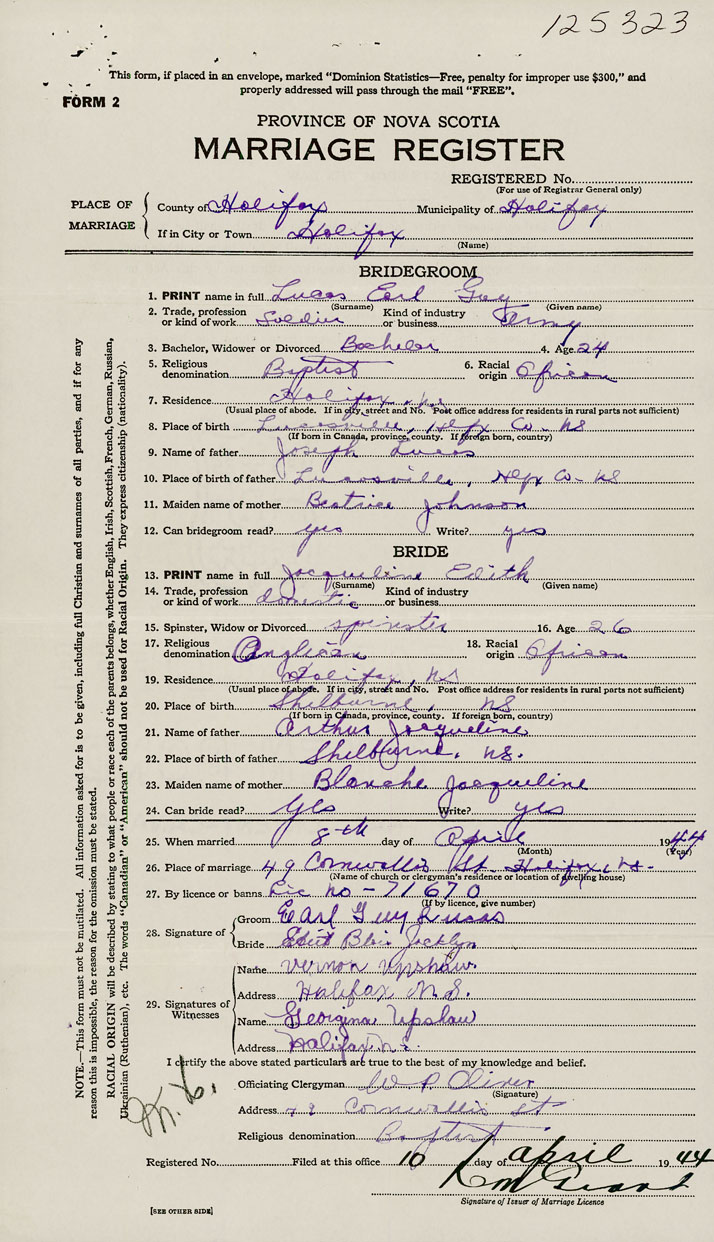 125323
This form, if placed in an envelope, marked "Dominion Statistics—Free, penalty for improper use $300," and
properly addressed will pass through the mail "FREE".
FORM 2
PROVINCE OF NOVA SCOTIA
MARRIAGE REGISTER
REGISTERED No.
(For use of Registrar General only)
PLACE OF MARRIAGE
County of Halifax Municipality of Halifax
If in City or Town Halifax
(Name)
BRIDEGROOM
1. PRINT name in full Lucas Earl Guy
(Surname) (Given name)
2. Trade, profession or kind of work Soldier Kind of industry or business Army
3. Bachelor, Widower or Divorced Bachelor 4. Age 24
5. Religious denomination Baptist 6. Racial origin African
7. Residence Halifax, N.S.
(Usual place of abode. If in city, street and No. Post office address for residents in rural parts not sufficient)
8. Place of birth Lucasville, Hlfx Co- NS
(If born in Canada, province, county. If foreign born, country)
9. Name of father Joseph Lucas
10. Place of birth of father Lucasville, Hlfx Co- NS
11. Maiden name of mother Beatrice Johnson
12. Can bridegroom read? yes Write? yes
BRIDE
13. PRINT name in full Jacqueline Edith
(Surname) (Given name)
14. Trade, profession or kind of work domestic Kind of industry or business
15. Spinster, Widow or Divorced spinster 16. Age 26
17. Religious denomination Anglican 18. Racial origin African
19. Residence Halifax, NS
(Usual place of abode. If in city, street and No. Post office address for residents in rural parts not sufficient)
20. Place of birth Shelburne, NS
(If born in Canada, province, county. If foreign born, country)
21. Name of father Arthur Jacqueline
22. Place of birth of father Shelburne, NS.
23. Maiden name of mother Blanche Jacqueline
24. Can bride read? Yes Write? yes
25. When married 8-th day of April 1944
(Month) (Year)
26. Place of marriage 49 Cornwallis St. Halifax, NS-
(Name of church or clergyman's residence or location of dwelling house)
27. By licence or banns Lic no - 71670
(If by licence, give number)
28. Signature of
Groom Earl Guy Lucas
Bride Edith Jacklyn
29. Signatures of Witnesses
Name Vernon Upshaw.
Address Halifax N.S.
Name Georgina Upshaw
Address Halifax N.S.
I certify the above stated particulars are true to the best of my knowledge and belief.
Officiating Clergyman W P Oliver
(Signature)
Address 49 Cornwallis St
Religious denomination Baptist
Registered No. Filed at this office 10 day of April 1944
Signature of Issuer of Marriage Licence
[SEE OTHER SIDE]
NOTE.—This form must not be mutilated. All information asked for is to be given, including full Christian and surnames of all parties, and if for any
reason this is impossible, the reason for the omission must be stated.
RACIAL ORIGIN will be described by stating to what people or race each of the parents belongs, whether English, Irish, Scottish, French, German, Russian,
Ukrainian (Ruthenian), etc. The words "Canadian" or "American" should not be used for Racial Origin. They express citizenship (nationality).